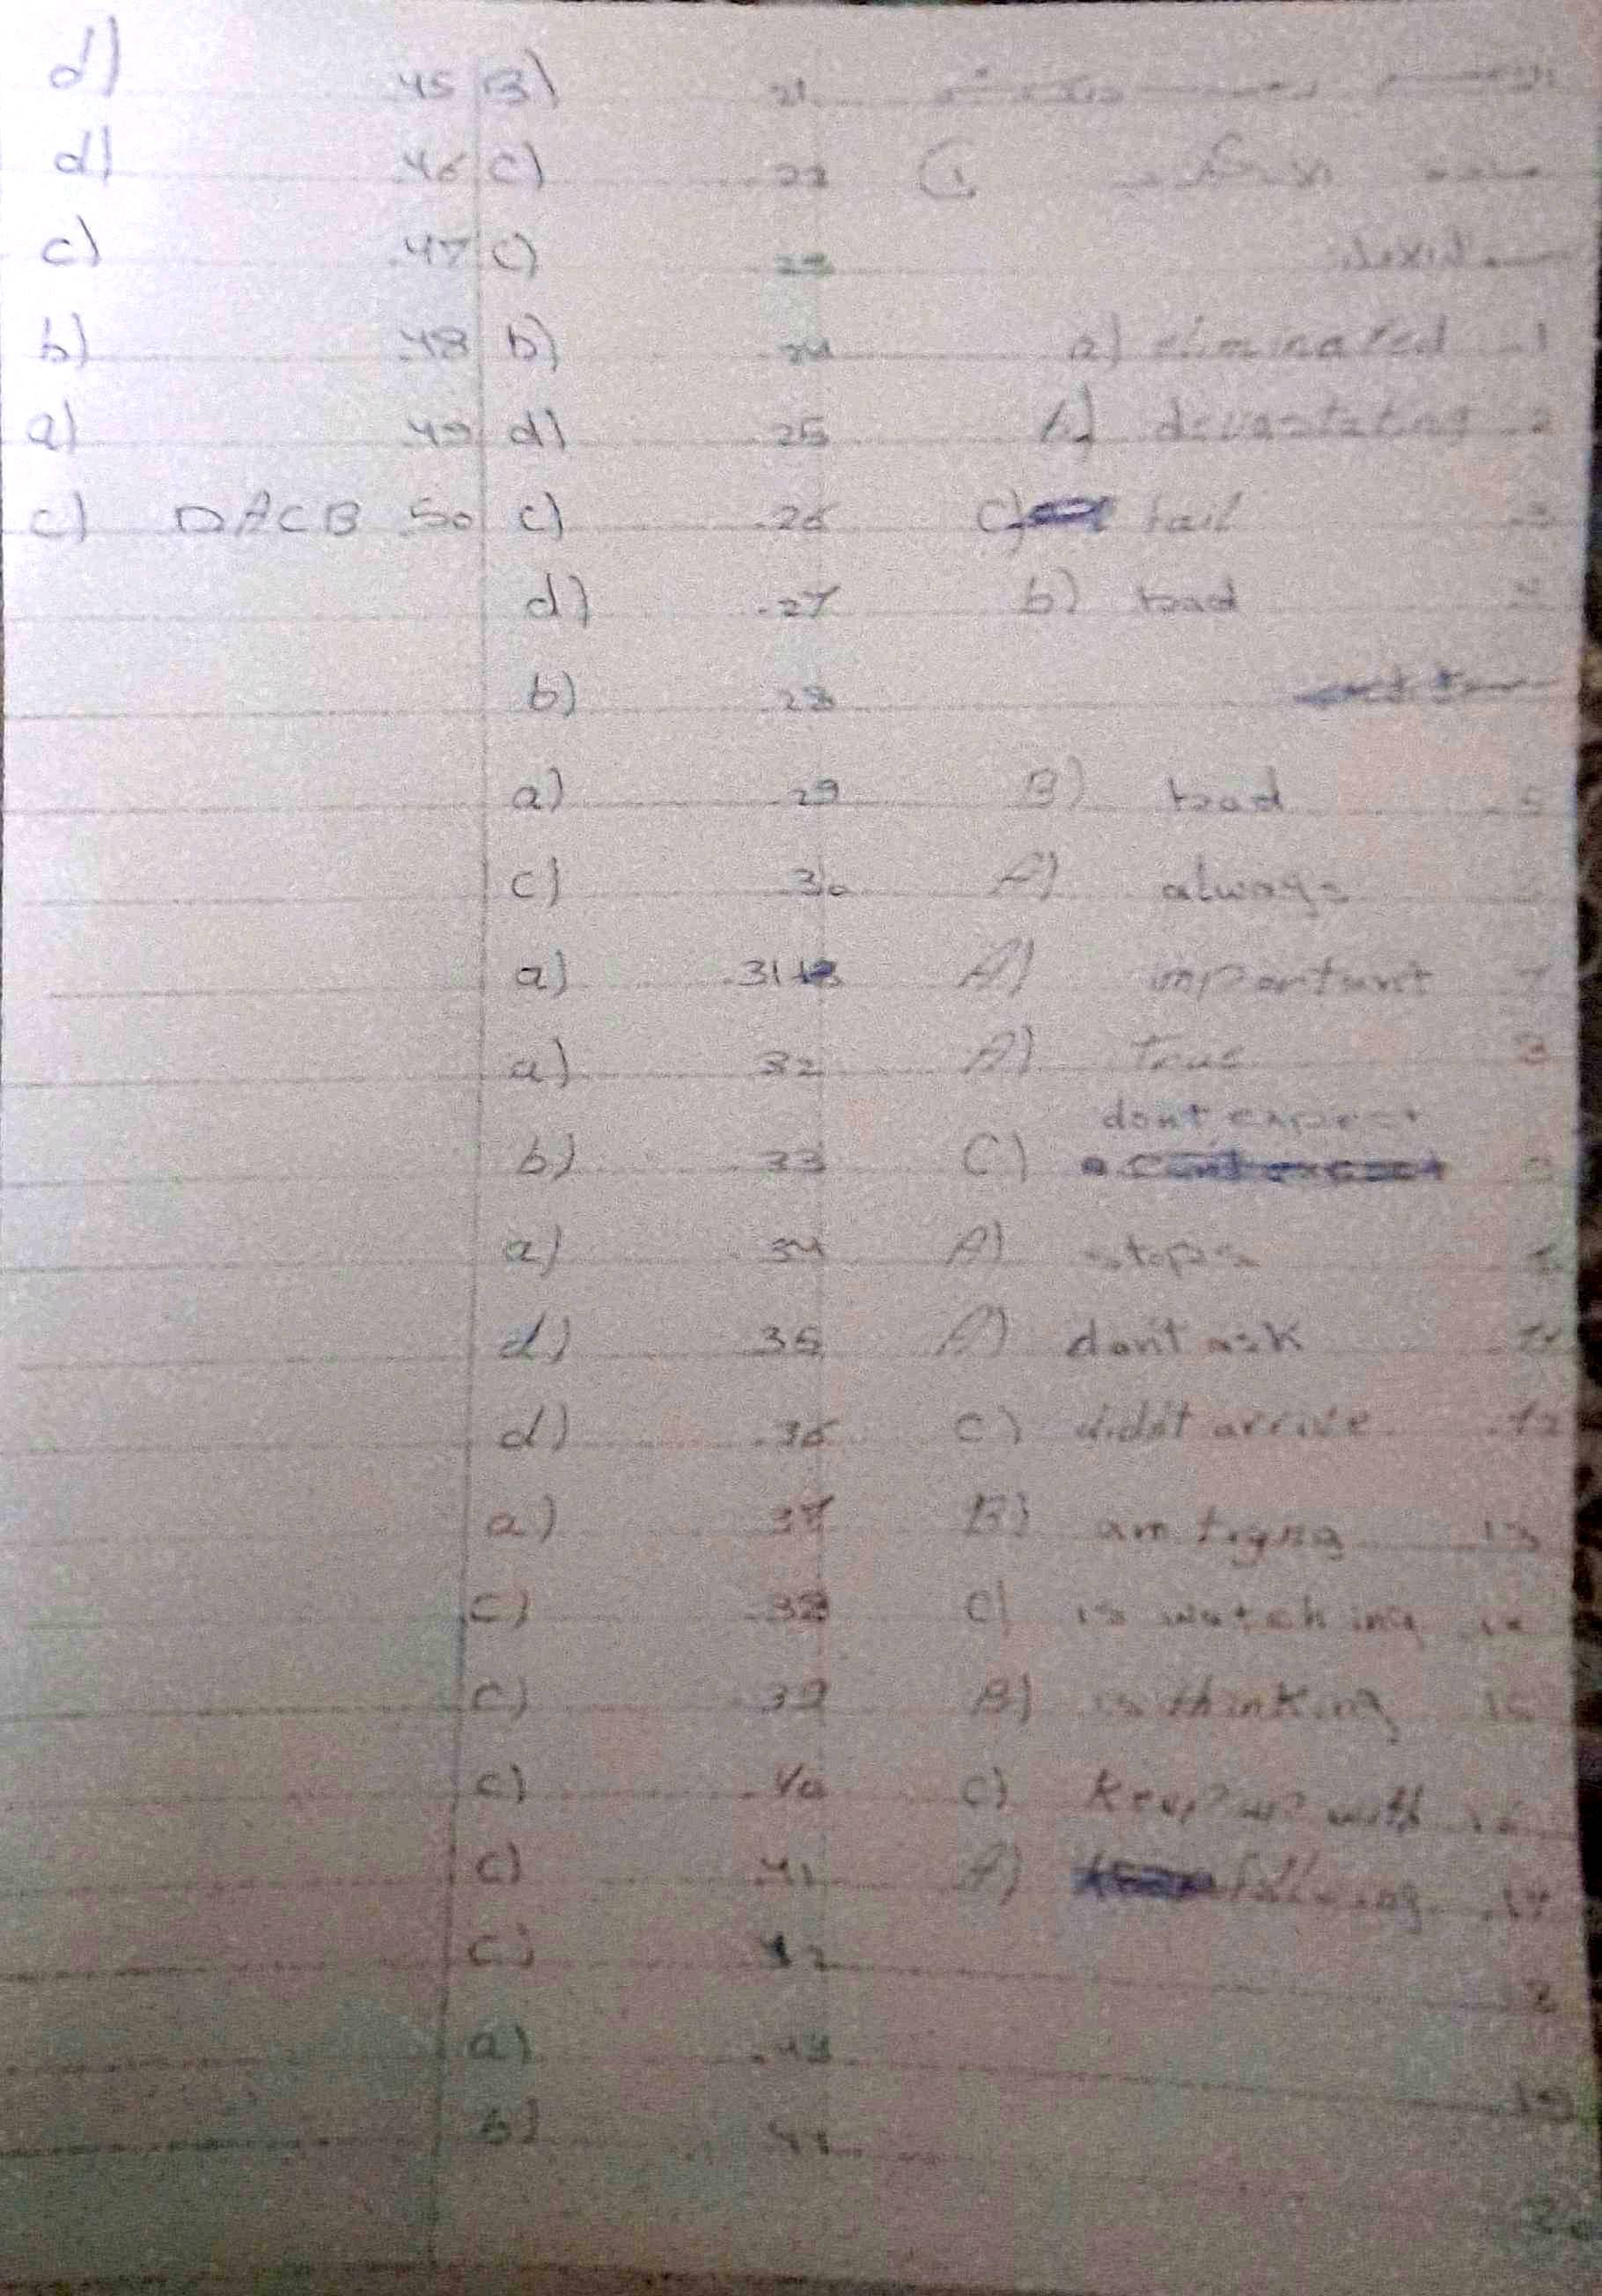 a) eliminated .1
A) devastating .2
C) tail .3
b) toad
B) toad .5
A) always
A) important 7
A) True 8
dont expect
C) 9
A) stops
A) don't ask 11
C) didn't arrive .12
B) am tryng .13
C) is watching 14
B) is thinking 15
C) Keep up with 16
A) following .17
19
B) 21
C) .22
C) 23
b) 24
d) 25
c) .26
d) .27
b) .28
a) 29
c) 30
a) .31
a) 32
b) 33
a) .34
d) 35
d) .36
a) 37
C) .38
C) .39
c) 40
c) .41
C) 42
a) .43
b) 44
d) .45
d) .46
c) .47
b) .48
a) 49
c) DACB 50